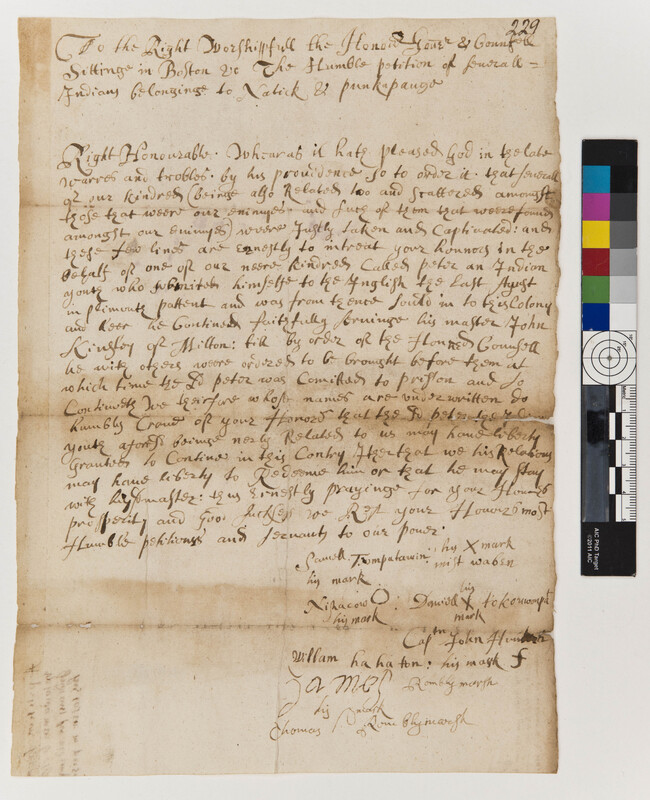 229
To the Right Worshipfull the Honord Gour & Counsell
Sittinge in Boston &c The Humble petition of seuerall
Indians belonginge to Natick & punkapauge
Right Honourable. Whearas it hath pleased God in the late
warres and trobles. by his providence so to order it. that seuerall
of our kindred (beinge also Related too and scattered amongst
those that weere our enimyes and such of them that weere found
amongst our enimyes) weere Justly taken and Captivated: and
these few lines are ernestly to intreat your honnors in the
behalf of one of our neere kindred Called peter an Indian
youth who submited himselfe to the English the Last August
in plimouth pattent and was from thence sould in to this Colony
and heer he Continued faithfully seruinge his master John
Kingsley of Milton: till by order of the Honnred Counsell
he with others weere ordered to be brought before them at
which time the sd peter was Comitted to prisson and so
Continueth we theirfore whose names are underwritten do
humbly Craue of your Honors that the sd peter the
youth aforesd beinge nerly Related to us may haue liberty
granted to Continue in this Contry that we his Relations
may haue liberty to Redeeme him or that he may stay
with his master: thus ernestly prayinge for your Honours
prosperity and good succses we Rest your Honours most
Humble petitioners and servants to our power.
Samell Trompatawin: his X mark
his mark mist waben
Nizacow O: Daniell his X tokowompt
his mark mark
Captn John Hunter
William hahaton: his mark
James Rumblymarsh
his mark
Thomas Rumblymarsh
AIC PhD Target
©2011 AIC